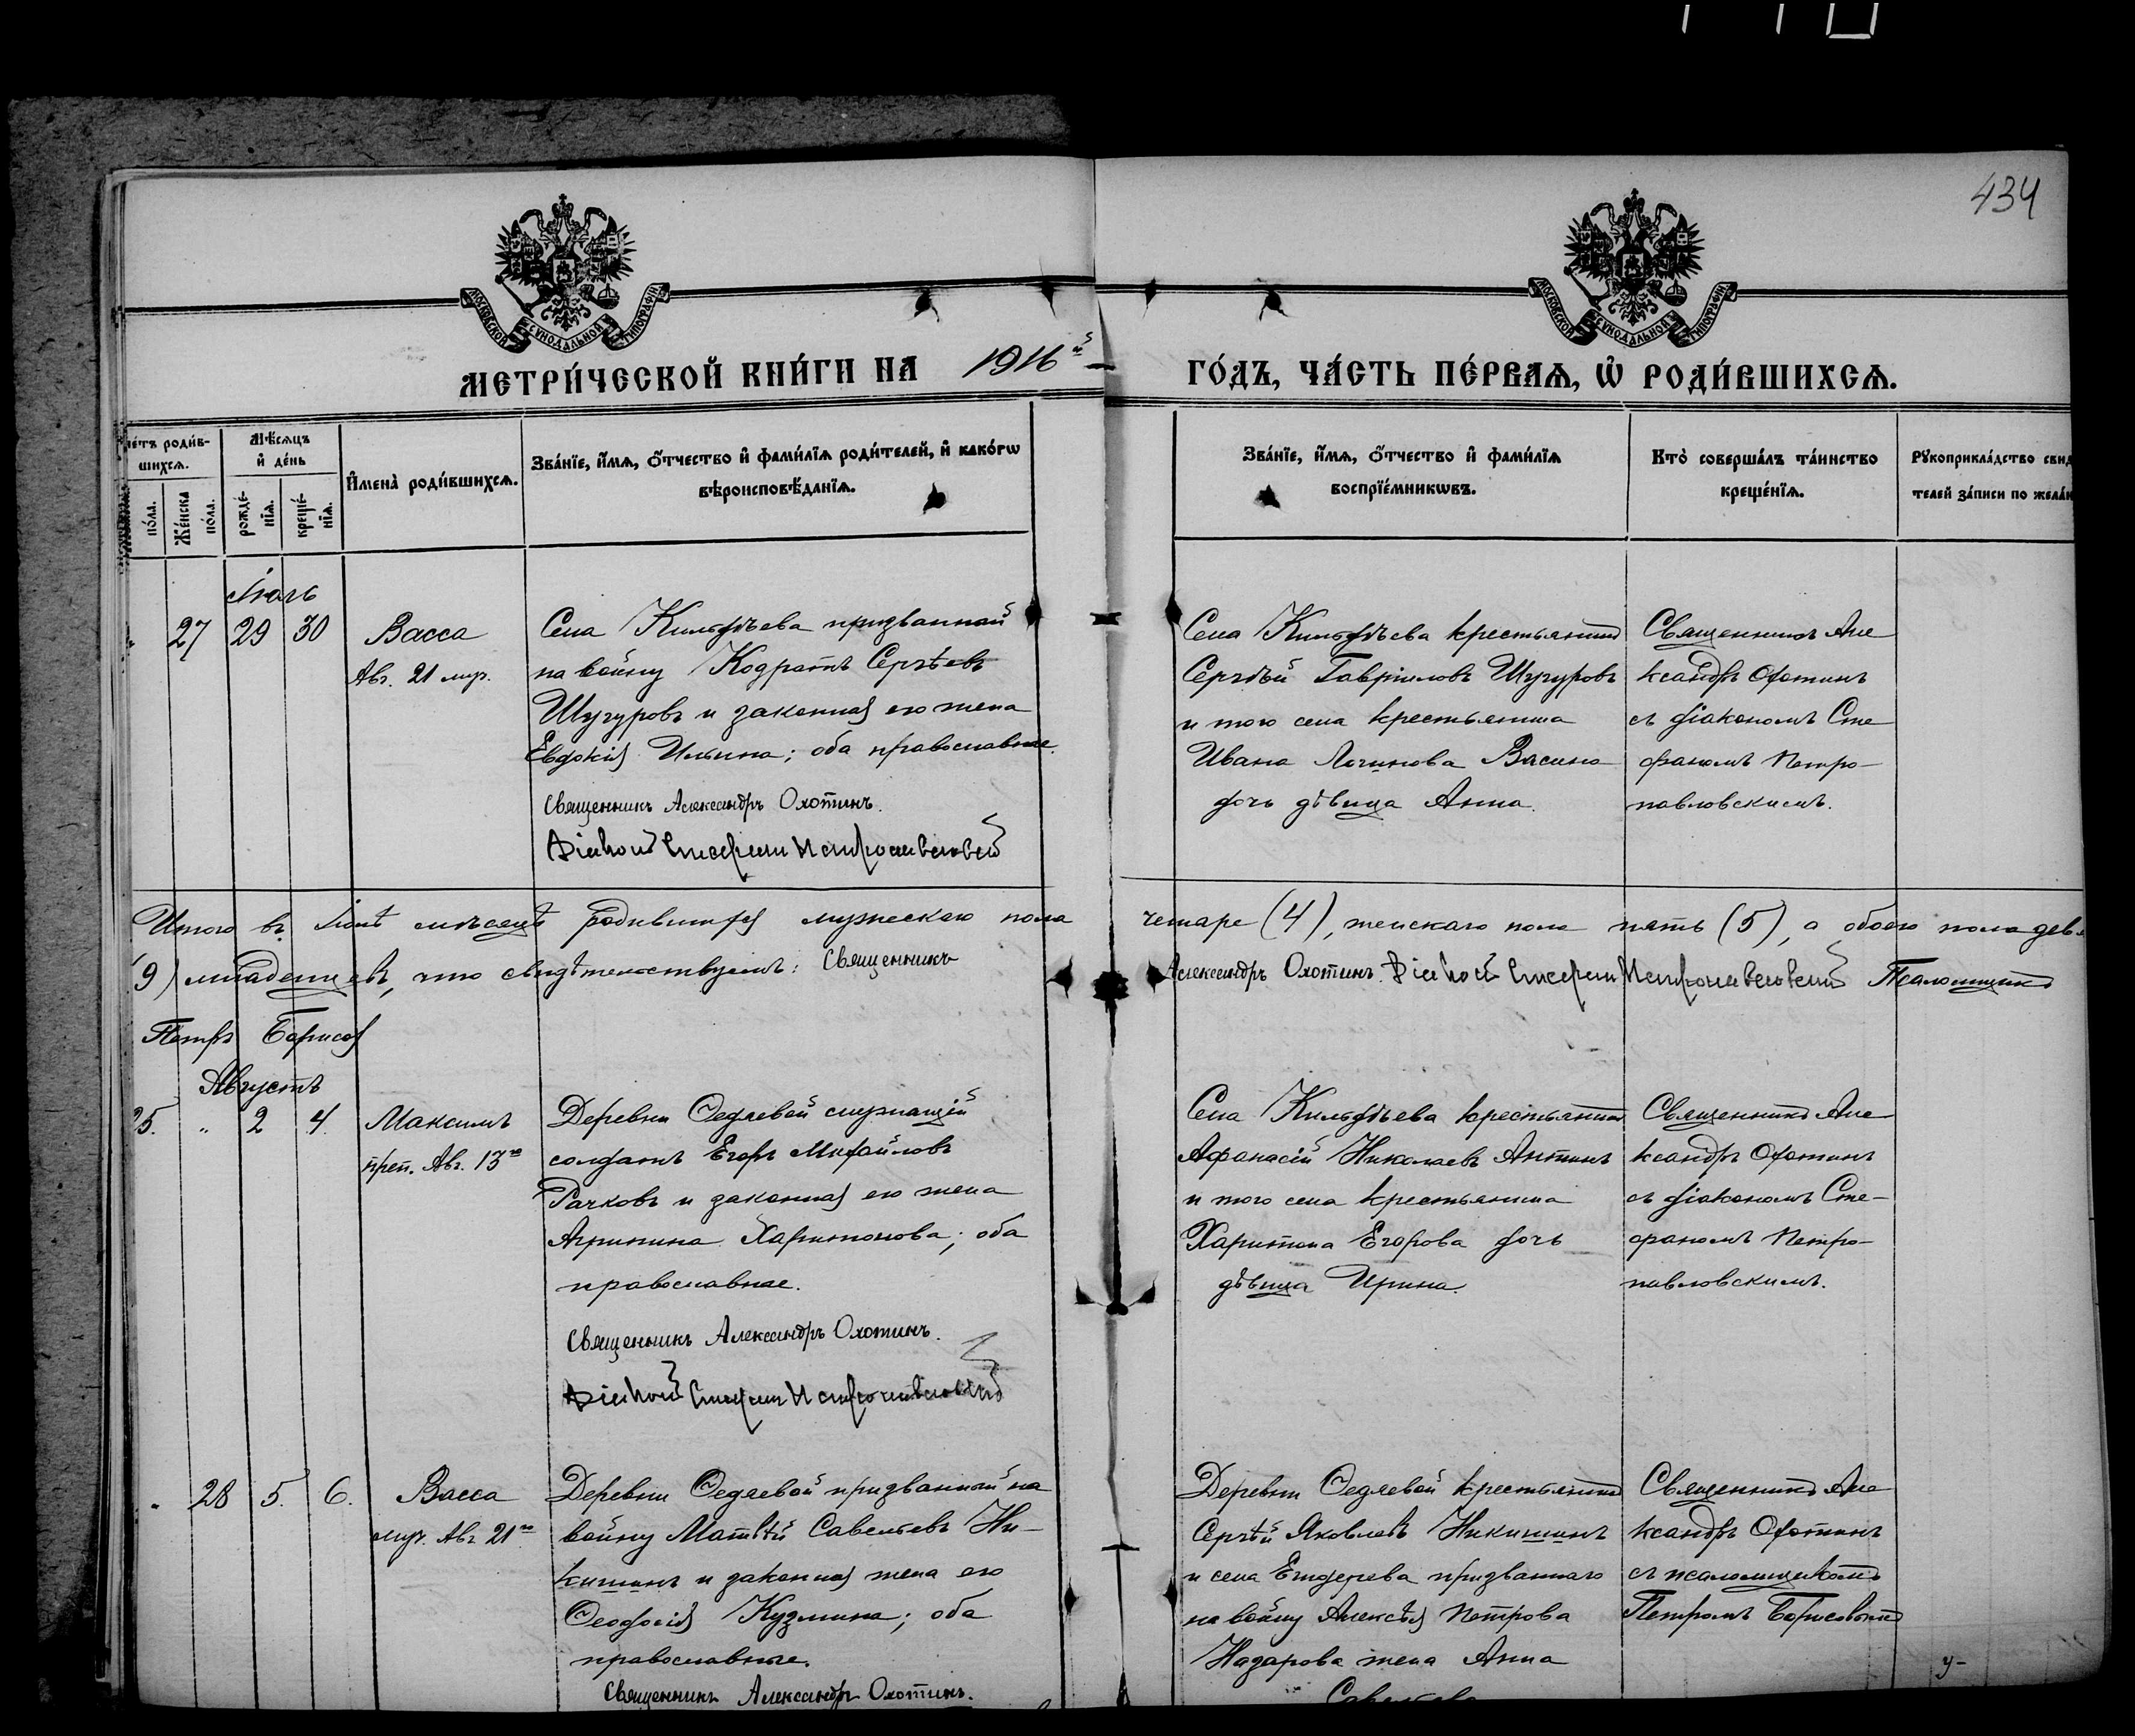 434
МОСКОВСКОЙ СѴНОДАЛЬНОЙ ТИПОГРАФІИ
МОСКОВСКОЙ СѴНОДАЛЬНОЙ ТИПОГРАФІИ
МЕТРИ́ЧЕСКОЙ КНИ́ГИ НА 1916й ГО́ДЪ, ЧА́СТЬ ПЕ́РВАѦ, Ѡ҆ РОДИ́ВШИХСѦ.
роди́в-
шихсѧ.
по́ла.
Же́нска
по́ла.
Мѣ́сѧцъ
и҆ де́нь
рожде́-
нїѧ.
креще́-
нїѧ.
И҆мена̀ роди́вшихсѧ.
Зва́нїе, и҆́мѧ, ѻ҆́тчество и҆ фами́лїѧ роди́телей, и҆ како́гѡ
вѣроисповѣ́данїѧ.
Зва́нїе, и҆́мѧ, ѻ҆́тчество и҆ фами́лїѧ
воспрїе́мникѡвъ.
Кто̀ соверша́лъ та́инство
креще́нїѧ.
Рꙋкоприкла́дство свид
телей за́писи по жела́н
Іюль
27 29 30 Васса
Авг. 21 муч.
Села Кильдѣева призванный
на войну Кодратъ Сергѣевъ
Шугуровъ и законная его жена
Евдокія Ильина; оба православные.
Священникъ Александръ Охотинъ.
Діаконъ Стефанъ Петропавловскій
Села Кильдѣева крестьянинъ
Сергѣй Гавріиловъ Шугуровъ
и того села крестьянина
Ивана Логинова Васина
дочь дѣвица Анна.
Священникъ Але
ксандръ Охотинъ
съ діакономъ Сте
фаномъ Петро-
павловскимъ.
Итого въ Іюлѣ мѣсяцѣ родившихся мужескаго пола четыре (4), женскаго пола пять (5), а обоего пола девя
9) младенцевъ, что свидѣтельствуемъ: Священникъ Александръ Охотинъ. Діаконъ Стефанъ Петропавловскій Псаломщикъ
Петръ Борисов
Августъ
25. " 2 4. Максимъ
преп. Авг. 13го
Деревни Седяевой служащій
солдатъ Егоръ Михайловъ
Рачковъ и законная его жена
Агрипина Харитонова; оба
православные.
Священникъ Александръ Охотинъ.
Діаконъ Стефанъ Петропавловскій
Села Кильдѣева крестьянинъ
Афанасій Николаевъ Антинъ
и того села крестьянина
Харитона Егорова дочь
дѣвица Ирина.
Священникъ Але
ксандръ Охотинъ
съ діакономъ Сте-
фаномъ Петро-
павловскимъ.
" 28 5. 6. Васса
муч. Авг. 21го
Деревни Седяевой призванный на
войну Матвѣй Савельевъ Ни-
кишинъ и законная жена его
Ѳеодосія Кузмина; оба
православные.
Священникъ Александръ Охотинъ.
Деревни Седяевой крестьянинъ
Сергѣй Яковлевъ Никишинъ
и села Ендерева призваннаго
на войну Алексѣя Петрова
Назарова жена Анна
Савельева
Священникъ Але
ксандръ Охотинъ
съ псаломщикомъ
Петромъ Борисовымъ